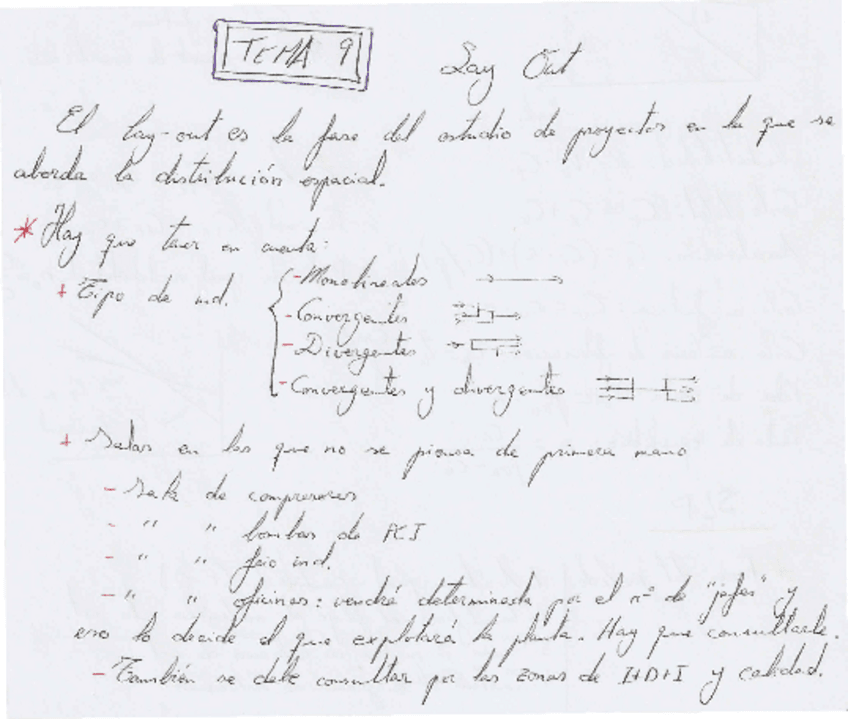 TEMA 9 Lay Out
El lay-out es la fase del estudio de proyectos en la que se
aborda la distribución espacial.
* Hay que tener en cuenta:
+ Tipo de ind. { - Monolineales
- Convergentes
- Divergentes
- Convergentes y divergentes
+ Salas en las que no se piensa de primera mano
- Sala de compresores
- " " bombas de PCI
- " " frio ind.
- " " oficinas: vendrá determinada por el nº de "jefes" y
eso lo decide el que explotará la planta. Hay que consultarle.
- También se debe consultar por las zonas de I+D+I y calidad.